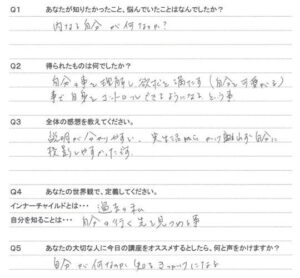 Q1 あなたが知りたかったこと、悩んでいたことはなんでしたか？
内なる自分が何なのか？
Q2 得られたものは何でしたか？
自分の事を理解し欲求を満たす（自分を可愛がる）
事で自身をコントロールできるようになるという事
Q3 全体の感想を教えてください。
説明が分かりやすい。実生活からかけ離れず自分に
投影しやすかったです。
Q4 あなたの世界観で、定義してください。
インナーチャイルドとは・・・ 過去の私
自分を知ることは・・・ 自分の行く先を見つめる事
Q5 あなたの大切な人に今日の講座をオススメするとしたら、何と声をかけますか？
自分が何なのか知るきっかけになるよ